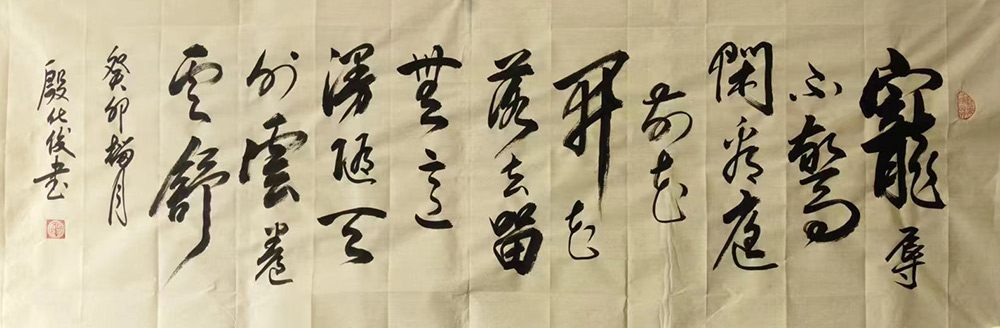 寵辱
不驚
閑看庭
前花
開花
落去留
無意
漫隨天
外雲卷
云舒
癸卯梅月
殷化俊書